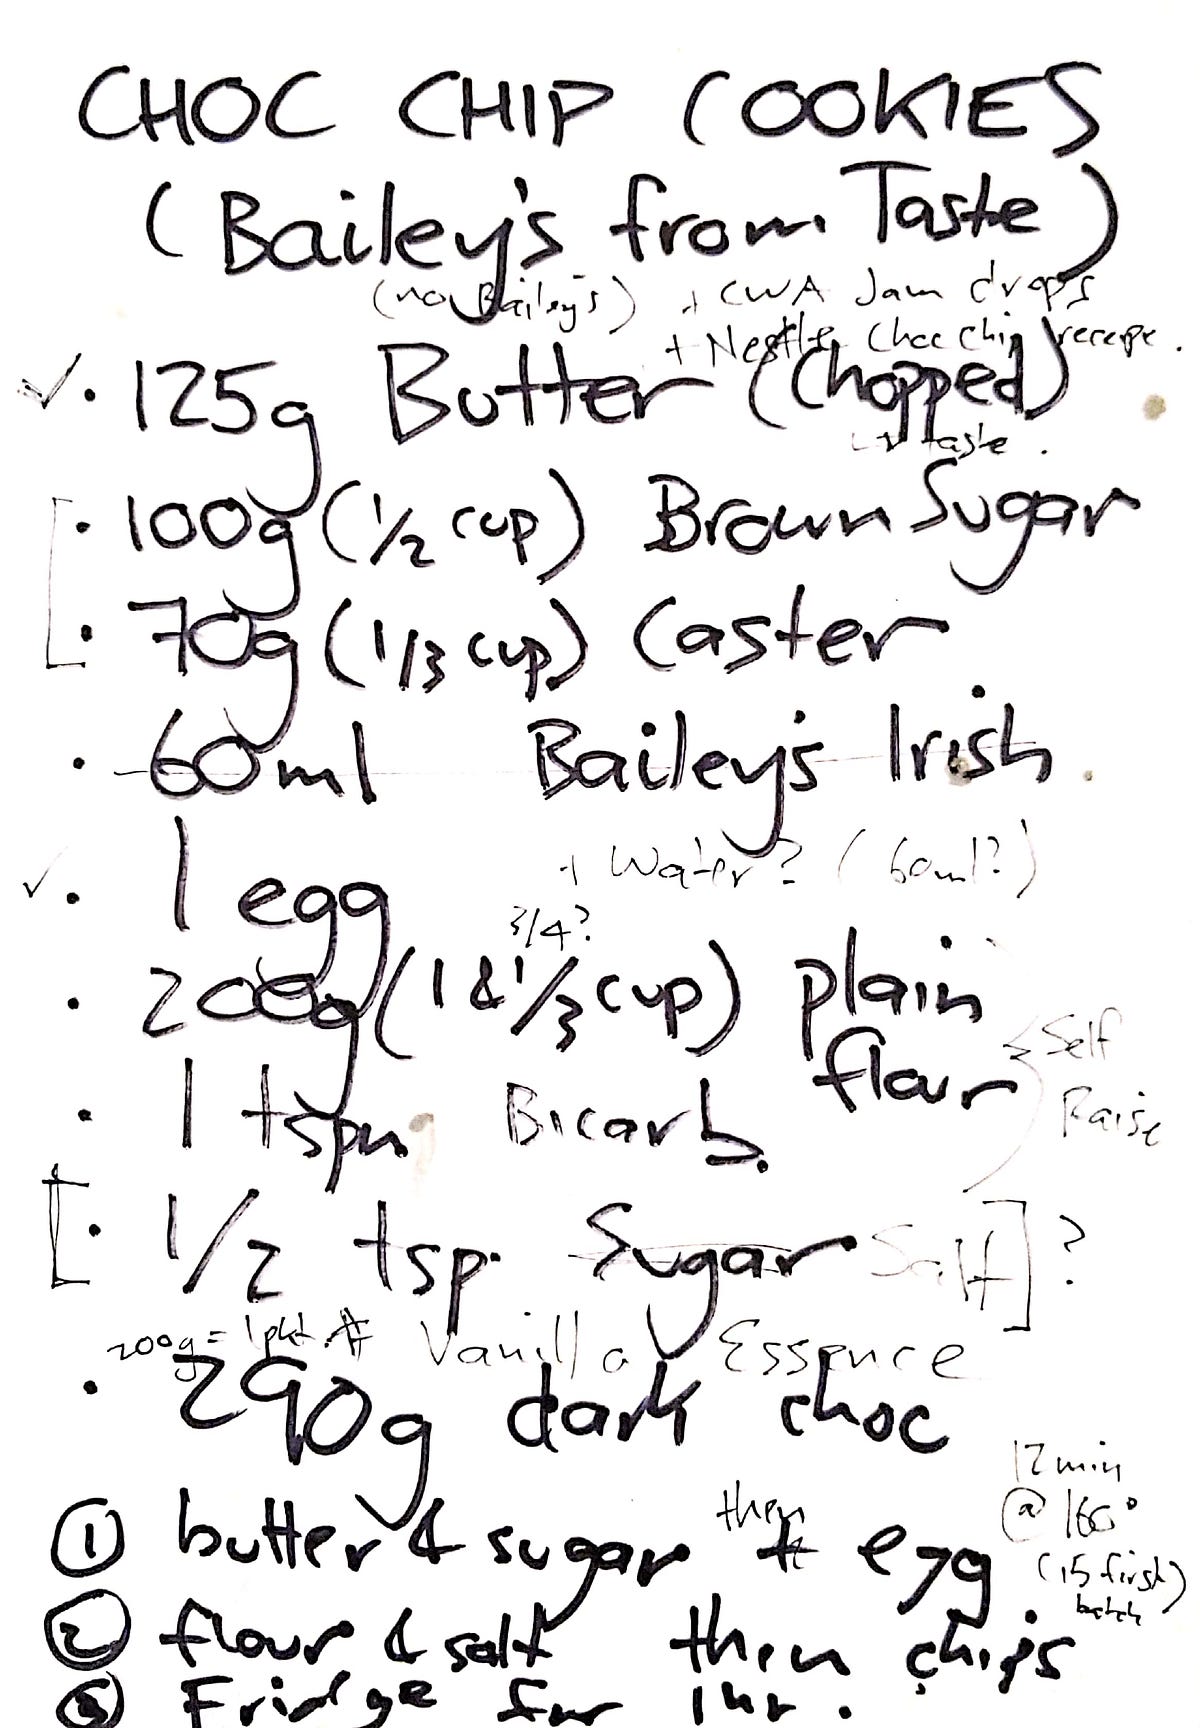 CHOC CHIP COOKIES
(Bailey's from Taste)
(no Bailey's) + CWA Jam drops
+ Nestle Choc Chip recepe.
✓ • 125g Butter (Chopped)
taste.
[ • 100g (1/2 cup) Brown Sugar
• 70g (1/3 cup) Caster
• 60ml Bailey's Irish.
+ Water? (60ml?)
✓ • 1 egg
3/4?
• 200g (1 & 1/3 cup) plain
flour
Self
Raise
• 1 tspn Bicarb.
[ • 1/2 tsp. Sugar Salt ] ?
200g = 1 pkt. Vanilla Essence
• 290g dark choc
12 min
@ 160°
(15 first)
batch
then
① butter & sugar + egg.
② flour & salt then chips
③ Fridge for 1 hr.